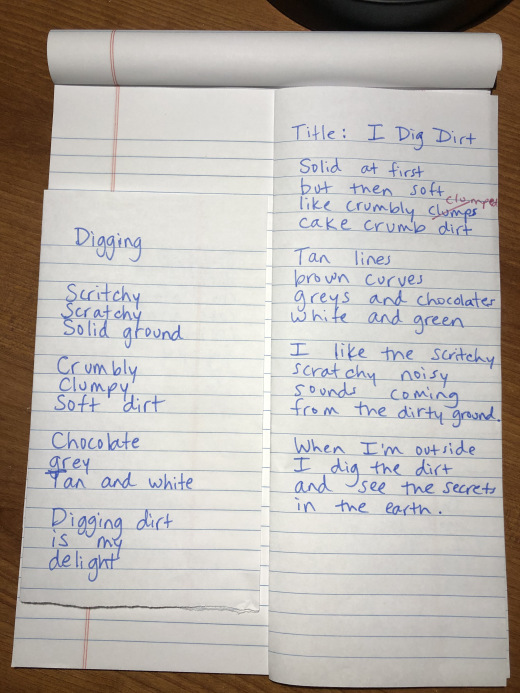 Digging
Scritchy
Scratchy
Solid ground
Crumbly
Clumpy
Soft dirt
Chocolate
grey
Tan and white
Digging dirt
is my
delight
Title: I Dig Dirt
Solid at first
but then soft
like crumbly clumps clumped
cake crumb dirt
Tan lines
brown curves
greys and chocolates
white and green
I like the scritchy
scratchy noisy
sounds coming
from the dirty ground.
When I'm outside
I dig the dirt
and see the secrets
in the earth.